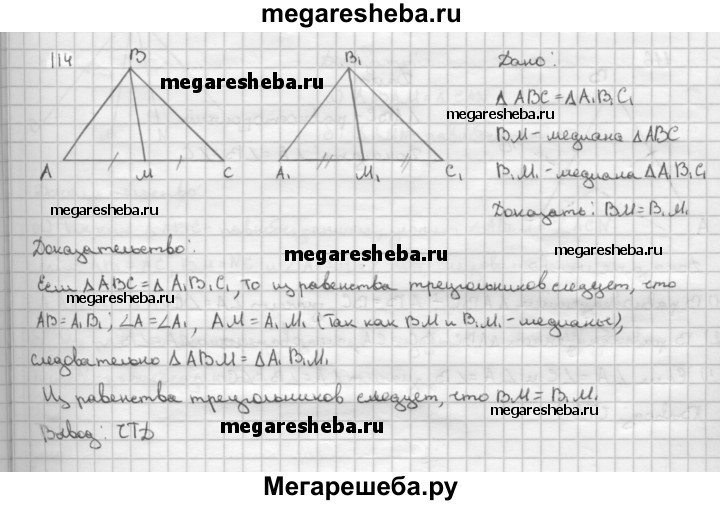 megaresheba.ru
114
B
B₁
A
M
C
A₁
M₁
C₁
megaresheba.ru
Дано:
Δ ABC = Δ A₁B₁C₁
megaresheba.ru
BM - медиана Δ ABC
B₁M₁ - медиана Δ A₁B₁C₁
Доказать: BM = B₁M₁
megaresheba.ru
Доказательство:
megaresheba.ru
megaresheba.ru
Если Δ ABC = Δ A₁B₁C₁, то из равенства треугольников следует, что
megaresheba.ru
AB = A₁B₁; ∠A = ∠A₁, AM = A₁M₁ (Так как BM и B₁M₁ - медианы),
следовательно Δ ABM = Δ A₁B₁M₁
Из равенства треугольников следует, что BM = B₁M₁
megaresheba.ru
Вывод: ЧТД
megaresheba.ru
Мегарешеба.ру